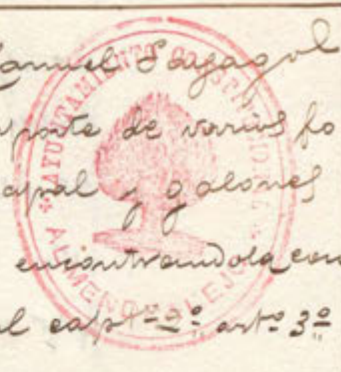 Manuel Sayagol
porte de varios fo
apal y galones
encontrandola con
l capt-2º artº 3º
AYUNTAMIENTO CONSTITUCIONAL
ALMENDRALEJO